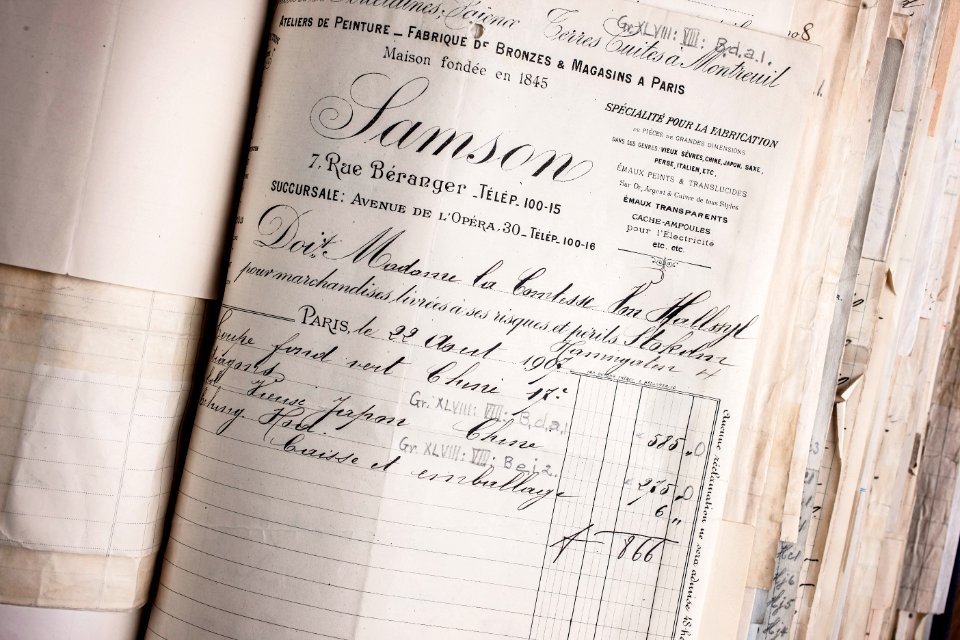 Porcelaines, Faïence Terres Cuites à Montreuil
Gr. XLVIII: VIII: B.d.a.1.
Ateliers de Peinture _ Fabrique de Bronzes & Magasins a Paris
Maison fondée en 1845
Samson
7, Rue Béranger _ Télép. 100-15
Succursale: Avenue de l'Opéra, 30 _ Telép. 100-16
SPÉCIALITÉ POUR LA FABRICATION
de PIÈCES de GRANDES DIMENSIONS
DANS LES GENRES: VIEUX SÈVRES, CHINE, JAPON, SAXE,
PERSE, ITALIEN, ETC.,
ÉMAUX PEINTS & TRANSLUCIDES
Sur Or, Argent & Cuivre de tous Styles
ÉMAUX TRANSPARENTS
CACHE-AMPOULES
pour l'Électricité
etc. etc.
Doit Madame la Comtesse Von Hallwyl
pour marchandises, livrées à ses risques et périls Stokolm
Hamngatan 4
Paris, le 22 Aout 190
fond vert Chine
Gr. XLVIII: VIII: B.d.a.1. 585
Japon Chine
Gr. XLVIII: VIII: B.e.j.2. 275
Caisse et emballage 6 "
866
Aucune réclamation ne sera admise